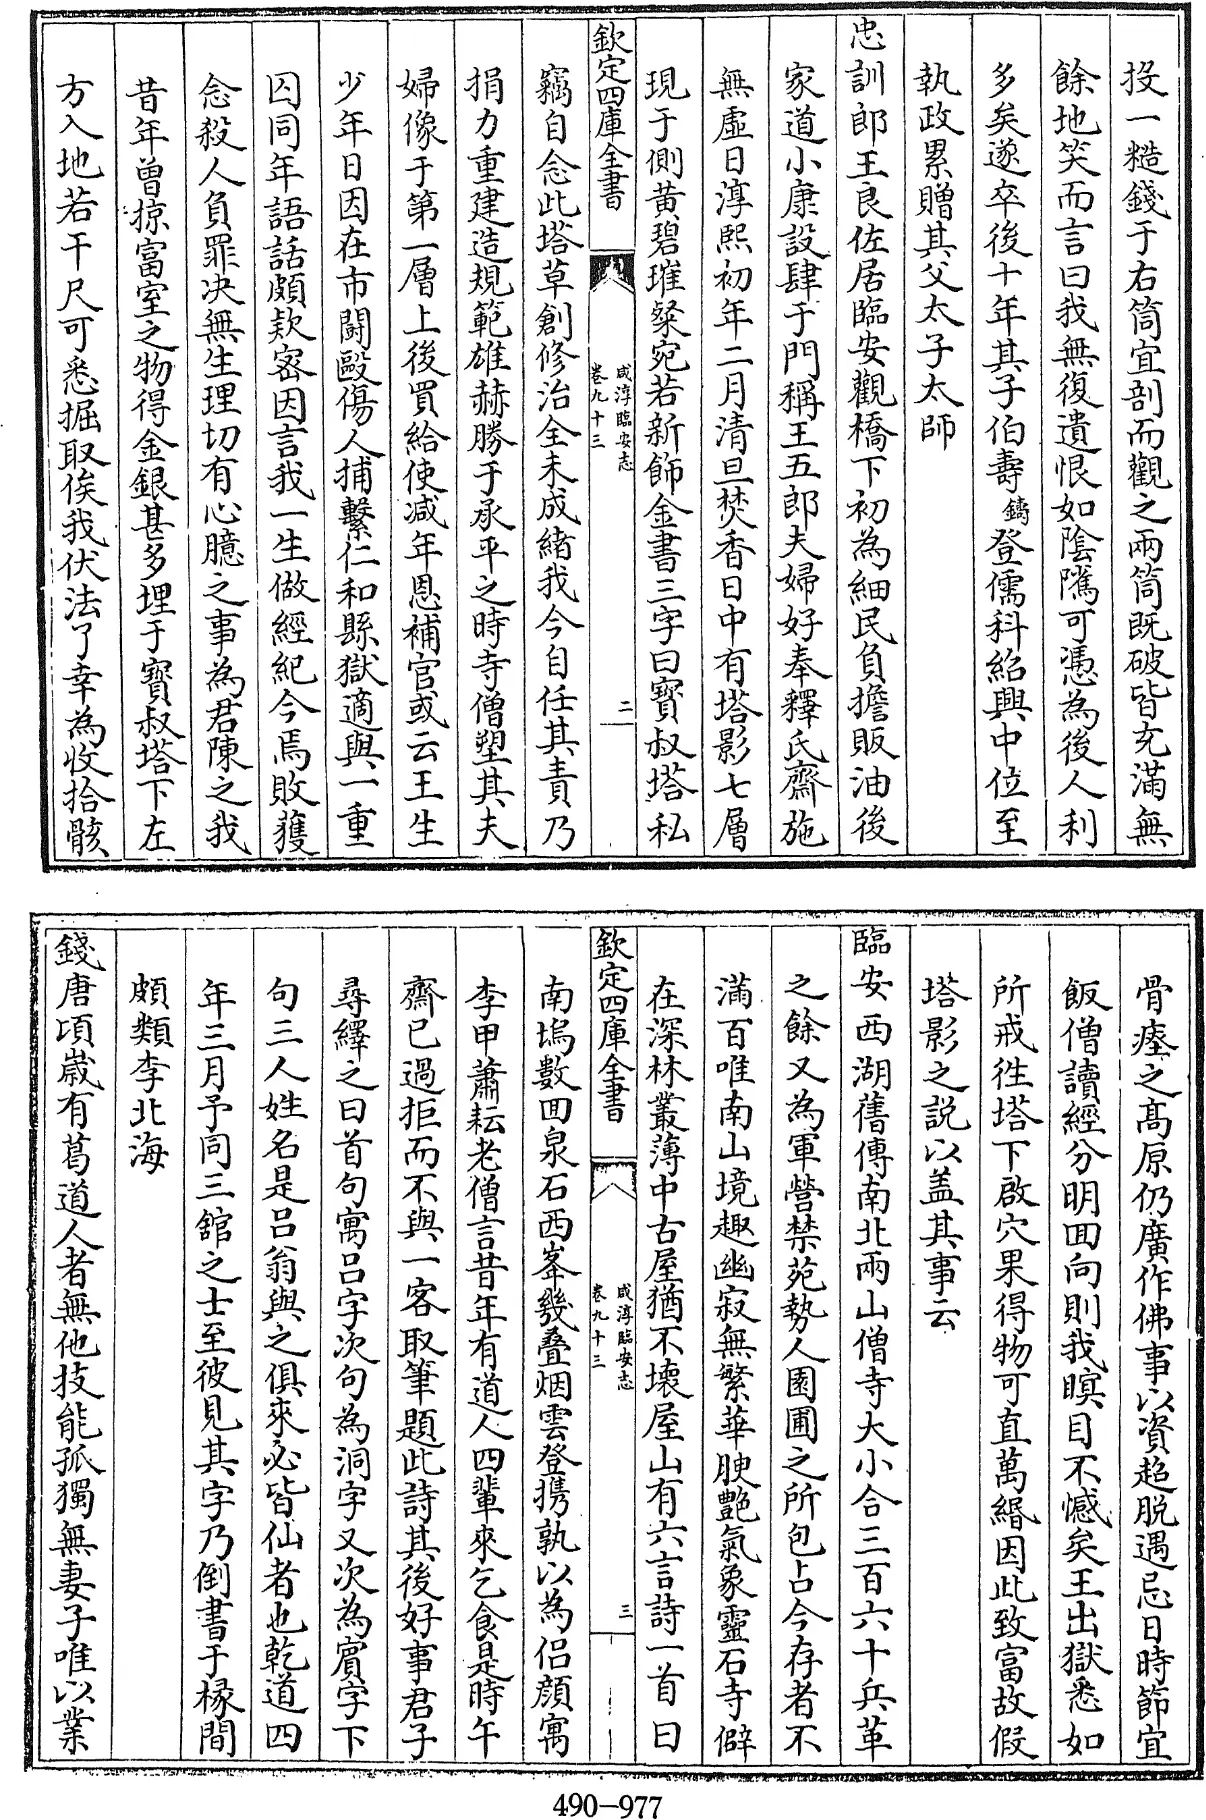 投一糙錢于右筒宜剖而觀之兩筒既破皆充滿無
餘地笑而言曰我無復遺恨如陰隲可憑為後人利
多矣遂卒後十年其子伯壽鑄登儒科紹興中位至
執政累贈其父太子太師
忠訓郎王良佐居臨安觀橋下初為細民負擔販油後
家道小康設肆于門稱王五郎夫婦好奉釋氏齋施
無虛日淳熙初年二月清旦焚香日中有塔影七層
現于側黃碧璀粲宛若新飾金書三字曰寶叔塔私
欽定四庫全書
咸淳臨安志
卷九十三
二
竊自念此塔草創修治全未成緒我今自任其責乃
捐力重建造規範雄赫勝于承平之時寺僧塑其夫
婦像于第一層上後買給使减年恩補官或云王生
少年日因在市鬪毆傷人捕繫仁和縣獄適與一重
囚同年語話頗欵密因言我一生做經紀今焉敗獲
念殺人負罪决無生理切有心臆之事為君陳之我
昔年曾掠富室之物得金銀甚多埋于寶叔塔下左
方入地若干尺可悉掘取俟我伏法了幸為收拾骸
骨瘞之高原仍廣作佛事以資超脱遇忌日時節宜
飯僧讀經分明回向則我瞑目不憾矣王出獄悉如
所戒徃塔下啟穴果得物可直萬緡因此致富故假
塔影之説以盖其事云
臨安西湖舊傳南北兩山僧寺大小合三百六十兵革
之餘又為軍營禁苑勢人園圃之所包占今存者不
滿百唯南山境趣幽寂無繁華腴艷氣象靈石寺僻
在深林叢薄中古屋猶不壞屋山有六言詩一首曰
欽定四庫全書
咸淳臨安志
卷九十三
三
南塢數回泉石西峯幾叠烟雲登携孰以為侣顔寓
李甲蕭耘老僧言昔年有道人四輩來乞食是時午
齋已過拒而不與一客取筆題此詩其後好事君子
尋繹之曰首句寓吕字次句為洞字又次為賔字下
句三人姓名是吕翁與之俱來必皆仙者也乾道四
年三月予同三舘之士至彼見其字乃倒書于椽間
頗類李北海
錢唐頃嵗有葛道人者無他技能孤獨無妻子唯以業
490-977